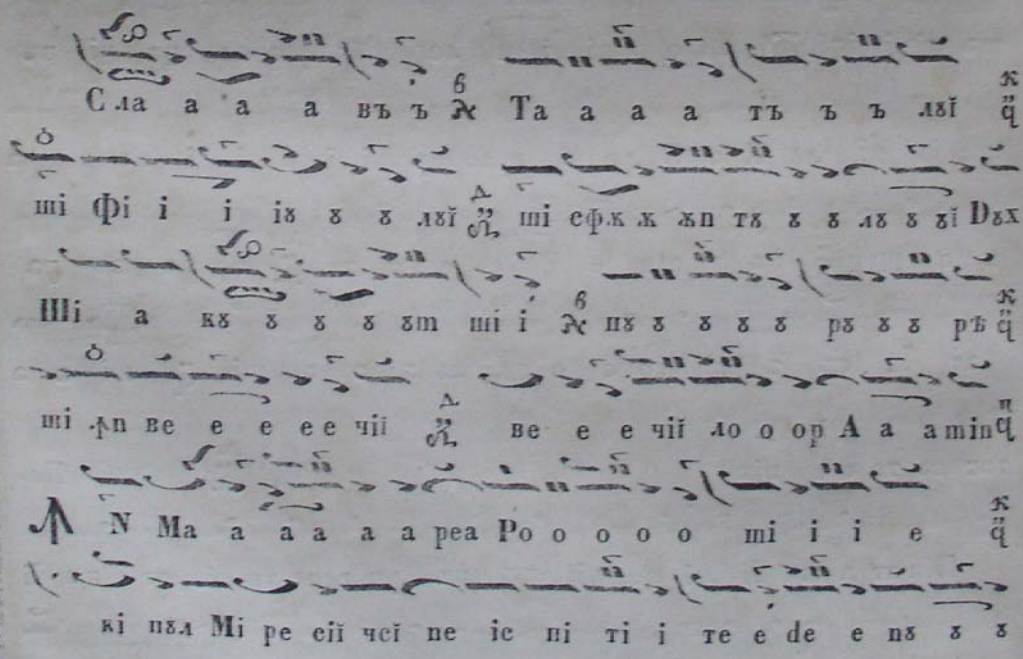 Сла а а а въ ъ Та а а а тъ ъ ъ лꙋĭ
ші Фі і і іꙋ ꙋ ꙋ лꙋĭ ші сф.к к ꙟп тꙋ ꙋ ꙋ лꙋ ꙋ ꙋĭ Dꙋх
Ші а кꙋ ꙋ ꙋ ꙋ ꙋm ші і пꙋ ꙋ ꙋ ꙋ ꙋ рꙋ ꙋ ꙋ рѣ
ші ꙟп ве е е е е чіĭ ве е е чіĭ ло о ор А а аmin
Ꙟ N Ма а а а а а реа Ро о о о о ші і і е
кі пꙋл Мі ре сіĭ чсĭ пе іс пі ті і те е de е пꙋ ꙋ ꙋ